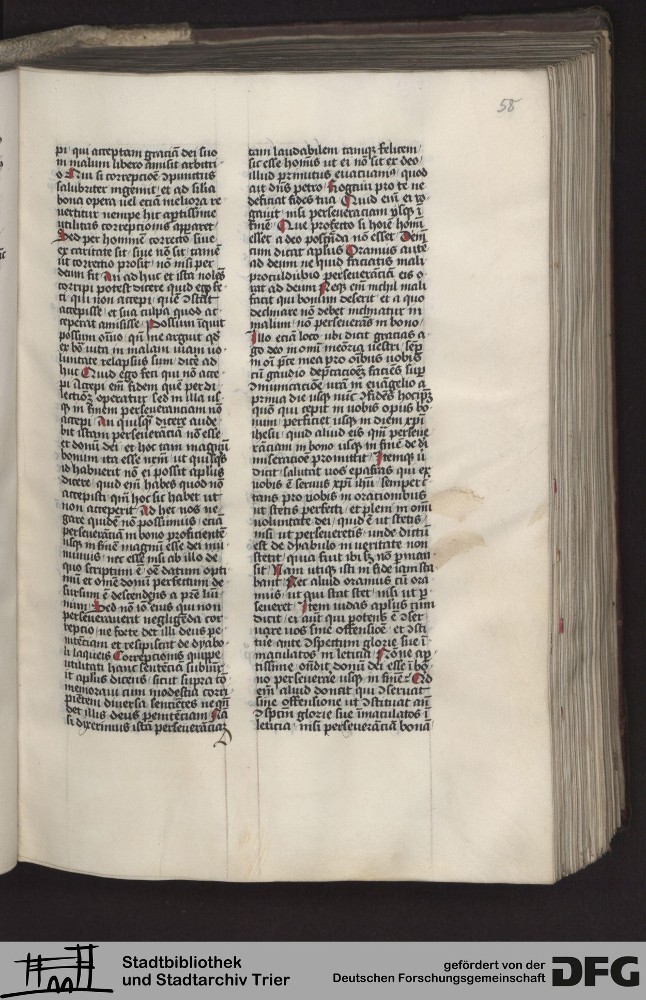 58
pi qui acceptam graciā dei suo
in malum libero amisit arbitri
o Qui si correpcōe ɔpunctus
salubriter ingemit et ad silia
bona opera uel eciā meliora re
uertitur nempe hic aptissime
utilitas correptionis apparet
Sed per hominē correcto siue
ex caritate sit siue nō sit tamē
ut correctio prosit nō nisi per
deum fit An ad huc et ista nolēs
corripi potest dicere quid ego fe
ci qui non accepi quē ɔstat
accepisse et sua culpa quod ac
ceperat amisisse Possum īquit
possum oīno qn̄ me arguit qd
ex bō uita in malam uiam uo
luntate relapsus sum dice ad
huc Quid ego feci qui nō acce
pi Accepi em̄ fidem que per di
lectiōȝ operatur sed in illa us
qȝ in finem perseueranciam nō
accepi An quisqȝ dicere aude
bit istam perseueraciā nō esse
et donū dei et hoc tam magnū
bonum ita esse nr̄m ut quisqs
id habuerit nō ei possit apl̄us
dicere quid em̄ habes quod nō
accepisti qm̄ hoc sic habet ut
non acceperit Ad hec nos ne
gare quidē nō possumus eciā
perseueranciā in bono proficientē
usqȝ in finē magnū esse dei mu
munus nec esse nisi ab illo de
quo scriptum ē oē datum opti
mū et omē donū perfectum de
sursum ē descendens a pr̄e lūi
num Sed nō iō eius qui non
perseuerauerit negligēda cor
repcio ne forte det illi deus pe
nitēciam et resipiscat de dyabo
li laqueis Correpcionis quippe
utilitati hanc sentēciā subiūx
it apl̄us dicens sicut supra cō
memoraui cum modestia corri
pientem diuersa sentiētes ne qn̄
det illis deus penitēciam Nā
si dixerimus istā perseueraciaȝ
tam laudabilem tamqȝ felicem
sic esse homīs ut ei nō sit ex deo
illud primitus euacuamus quod
ait dn̄s petro Rogaui pro te ne
deficiat fides tua Quid em̄ ei ro
gauit nisi perseueranciam usqȝ ī
finē Que profecto si hoīe homī
esset a deo poscēda nō esset Dem̄
cum dicat apl̄us Oramus autē
ad deum ne quid faciatis mali
proculdubio perseuerāciā eis o
rat ad deum Neqȝ em̄ nichil mali
facit qui bonum deserit et a quo
declinare nō debet inclinatur in
malum no perseuerās in bono
Illo eciā loco ubi dicit gracias a
go deo in omī meōria uestri sēp
in oī p̄ce mea pro oībus uobis
cū gaudio dep̄cacioēȝ faciēs sup
ɔmunicacioē urā in euāgelio a
prima die usqȝ nūc ɔfidēs hocip̄ȝ
quō qui cepit in uobis opus bo
num perficiet usqȝ in diem xp̄i
ihesu quid aliud eis qm̄ perseue
raciam in bono usqȝ in finē de di
miseracioē promittit Itemqȝ ū
dicit salutat uos epafras qui ex
uobis ē seruus xp̄i ihū semper c
tans pro uobis in orationibus
ut stetis perfecti et pleni in omī
voluntate dei quid ē ut stetis
nisi ut perseueretis unde dictū
est de dyabulo in ueritate non
stetit quia fuit ibi sȝ nō p̄man
sit Nam utiqȝ isti in fide iam sta
bant Nec aliud oramus cū ora
mus ut qui stat stet nisi ut p̄
seueret Item iudas apl̄us cum
dicit ei aūt qui potens ē ɔser
uare uos sine offensiōe et ɔsti
tue ante ɔspectum glorie sue ī
maculatos in leticia Nōne ap
tissime on̄dit donū dei esse ī bō
no perseuerāre usqȝ in finē Qd
em̄ aliud donat qui ɔseruat
sine offensione ut ɔstituat an̄
ɔspctū glorie sue īmaculatos ī
leticia nisi perseuerāciā bonā
Stadtbibliothek
und Stadtarchiv Trier
gefördert von der
Deutschen Forschungsgemeinschaft
DFG